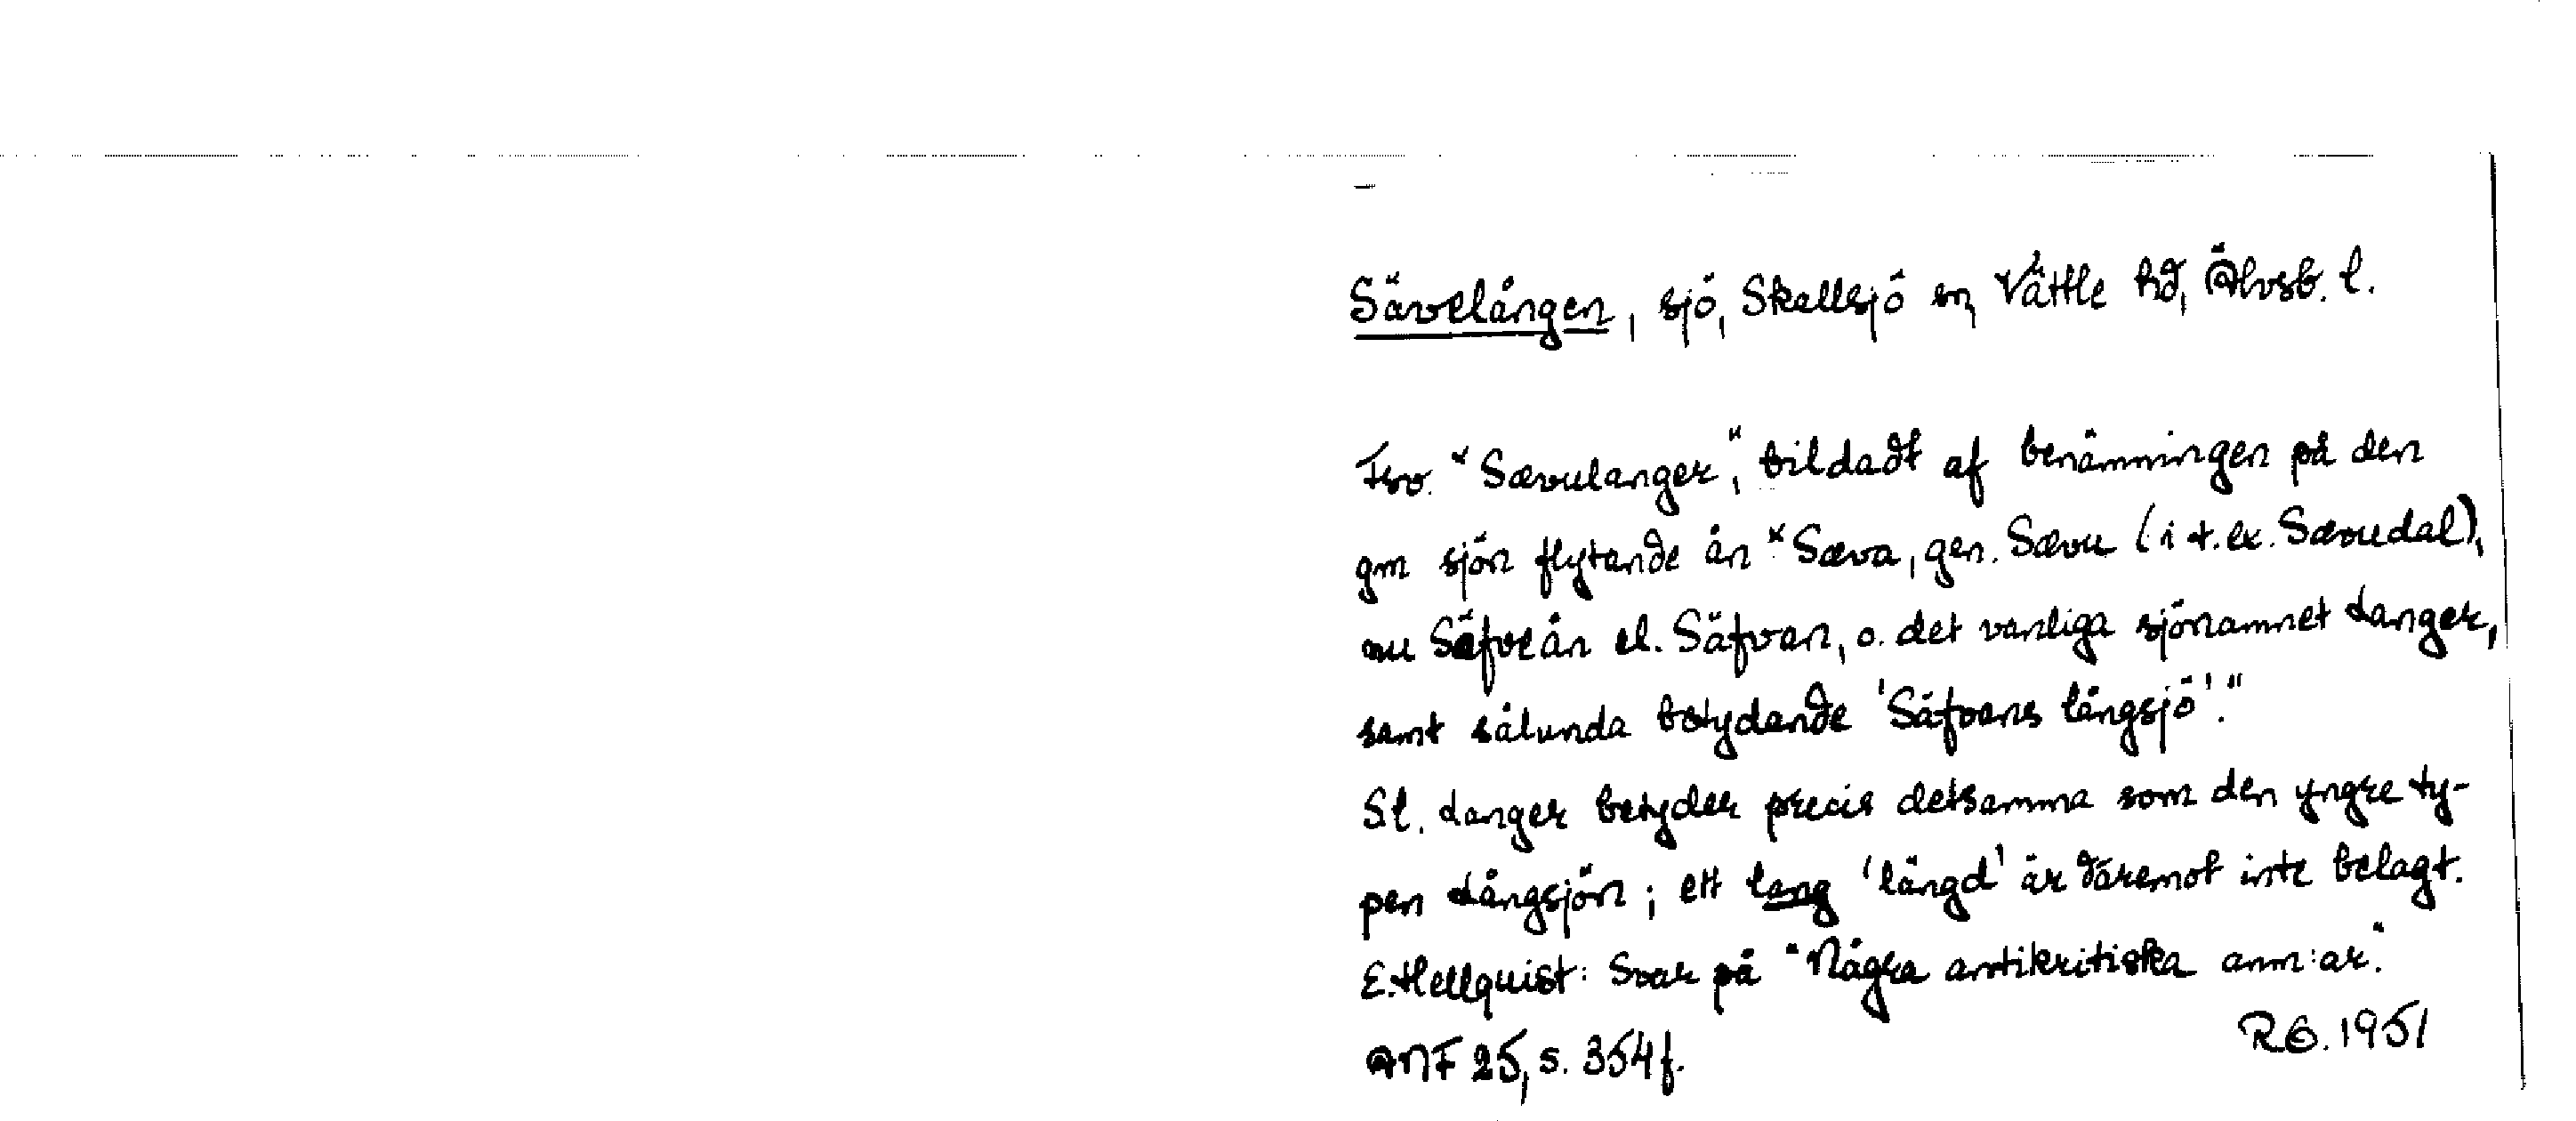 Sävelången, sjö, Skallsjö sn, Vättle hd, Älvsb. l.
Fsv. *Sævulanger", bildadt af benämningen på den
gm sjön flytande ån *Sæva, gen. Sævu (i t.ex. Sævudal),
nu Säfveån el. Säfvan, o. det vanliga sjönamnet Langer,
samt sålunda betydande 'Säfvans långsjö'."
S.l. Langer betyder precis detsamma som den yngre ty-
pen Långsjön; ett lang 'längd' är däremot inte belagt.
E. Hellquist: Svar på "Några antikritiska anm:ar."
ANF 25, s. 354 f.
RÖ. 1951